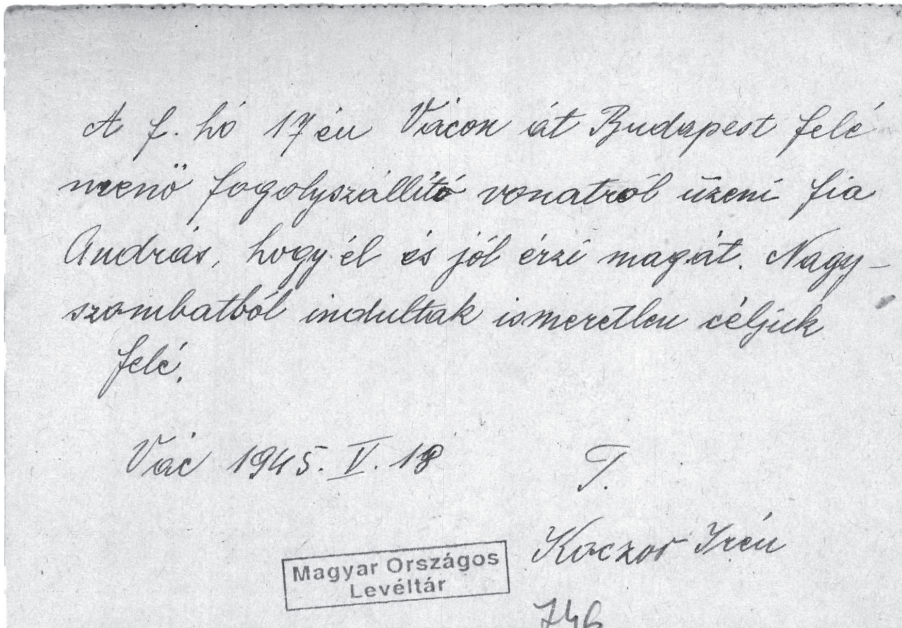 A f. hó 17 én Vácon át Budapest felé
menő fogolyszállító vonatról üzeni fia
András, hogy él és jól érzi magát. Nagy-
szombatból indultak ismeretlen céljuk
felé.
Vác 1945. V. 18
T.
Kaczor Irén
Magyar Országos
Levéltár
746